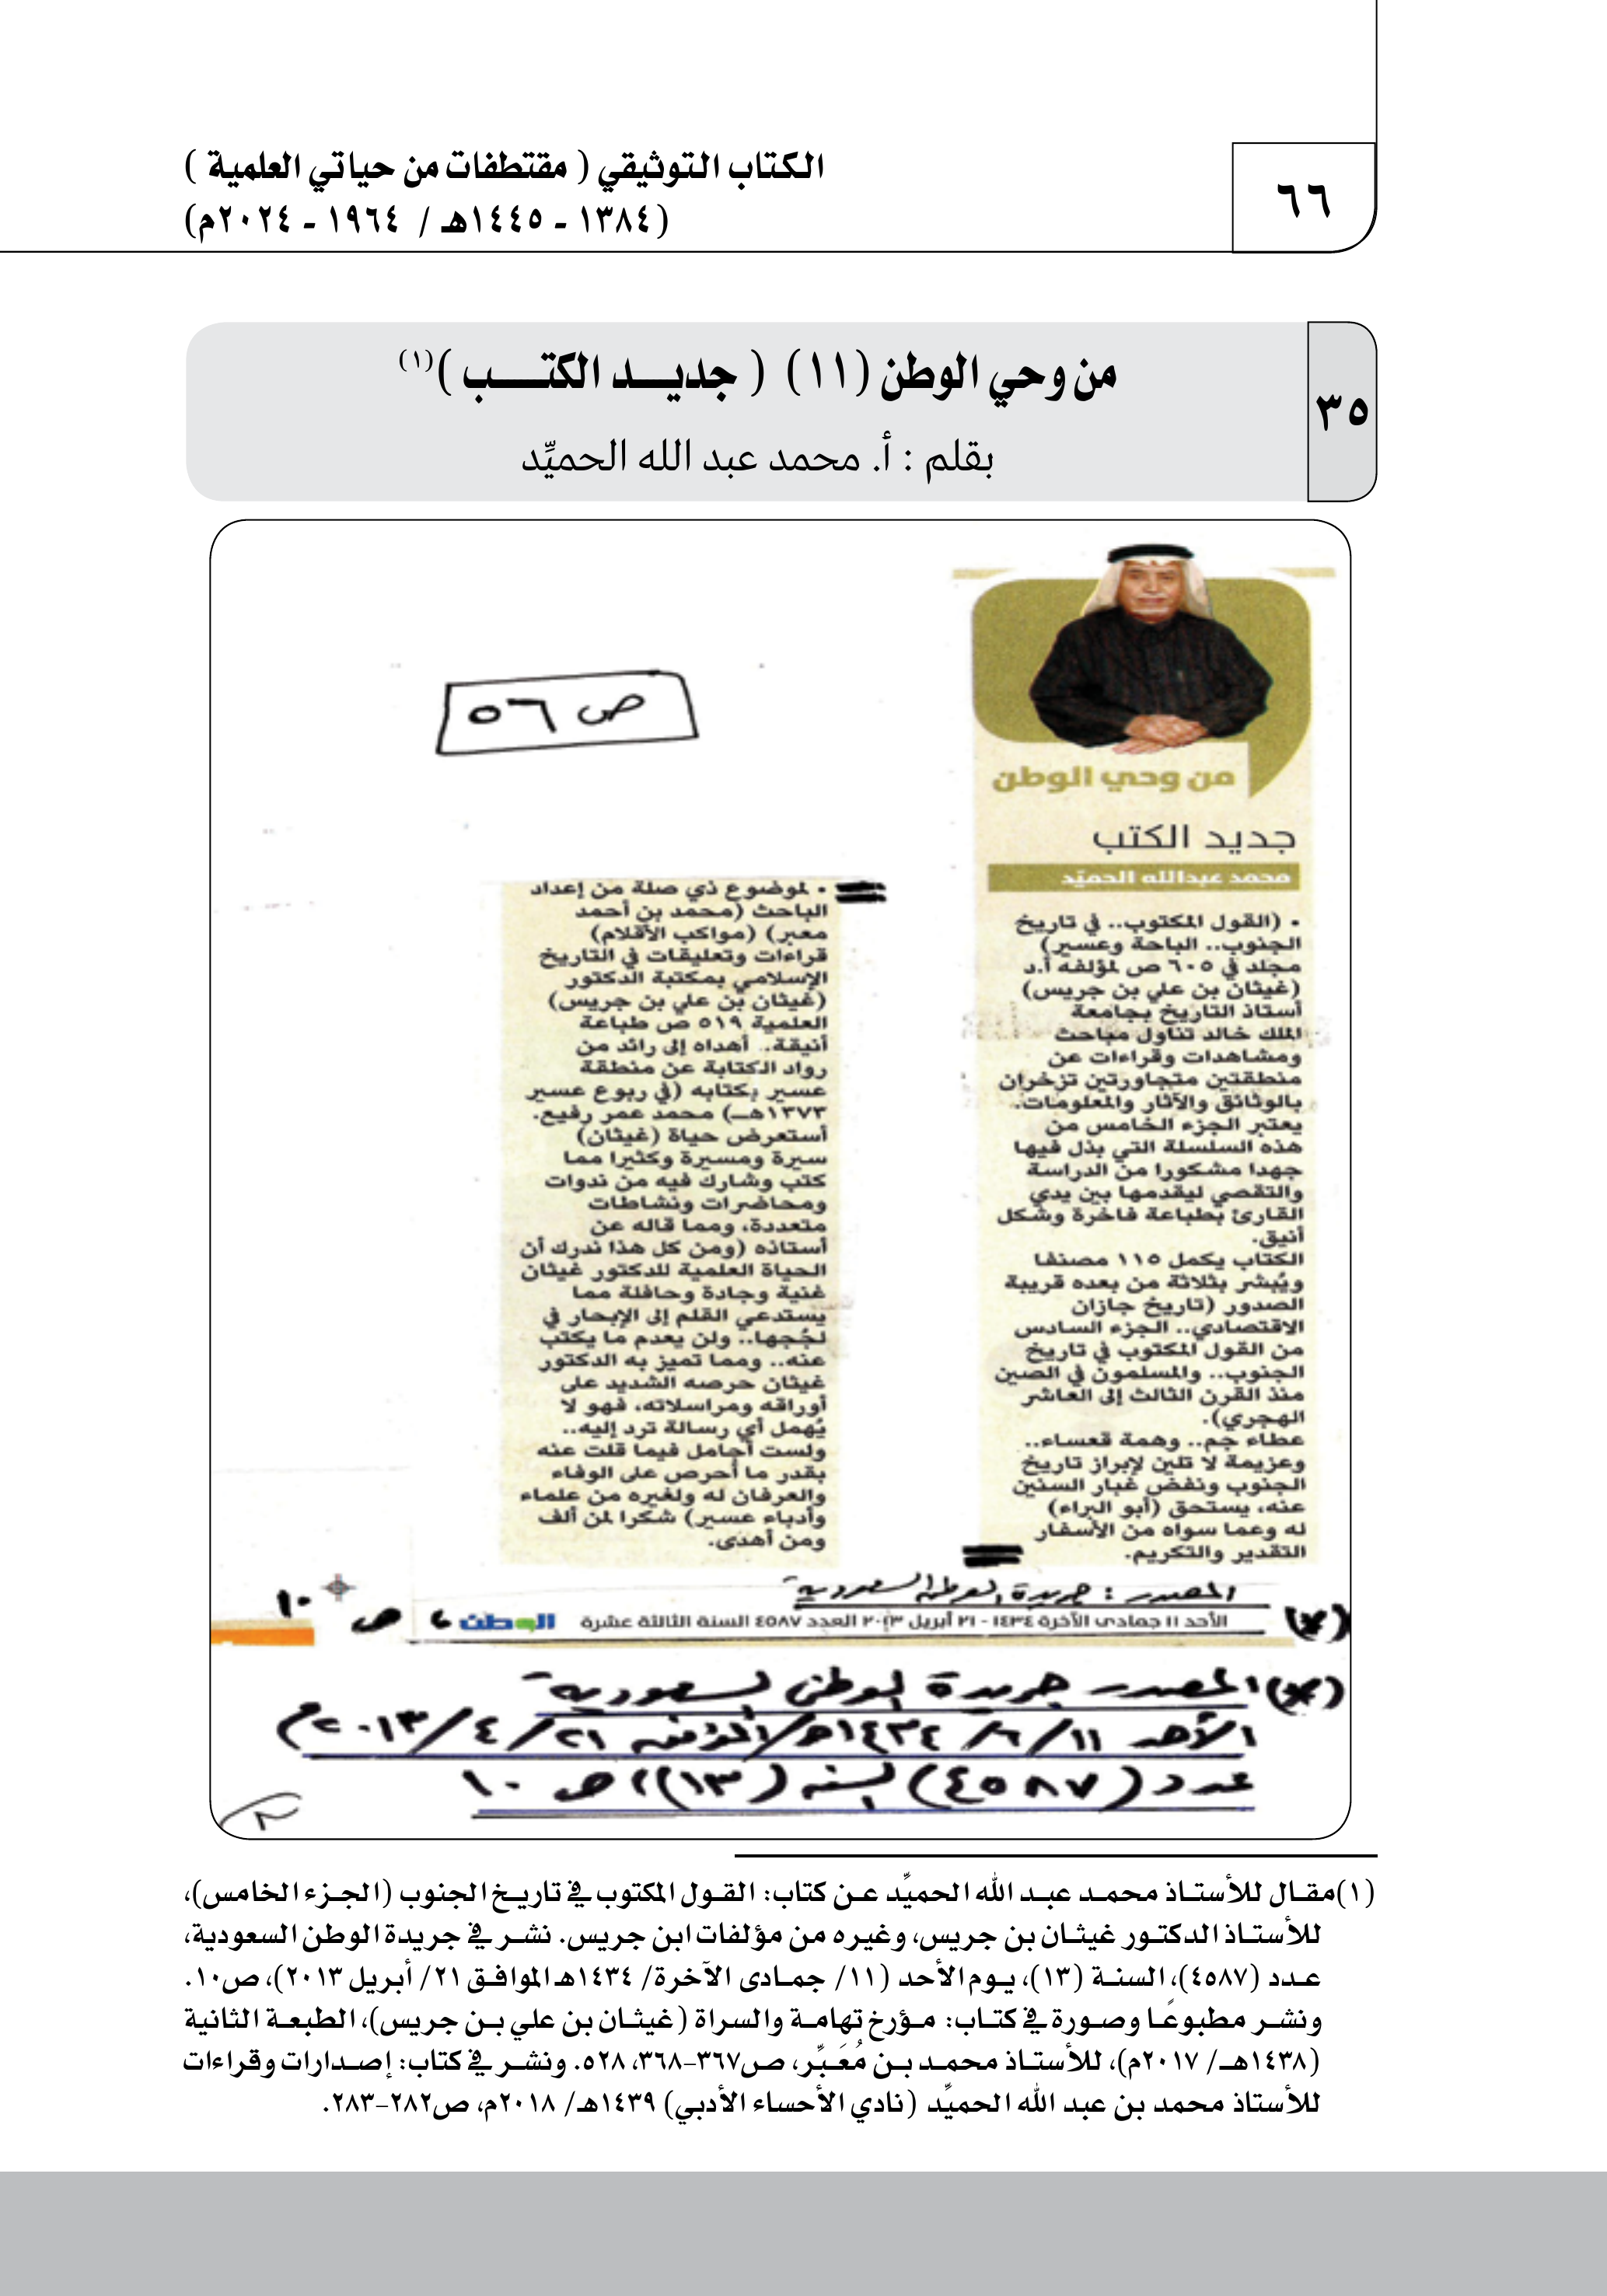 الكتاب التوثيقي ( مقتطفات من حياتي العلمية )
(١٣٨٤ - ١٤٤٥هـ / ١٩٦٤ - ٢٠٢٤م)
٦٦
٣٥
من وحي الوطن (١١) ( جديد الكتب )(١)
بقلم : أ. محمد عبد الله الحميِّد
من وحي الوطن
جديد الكتب
محمد عبدالله الحميّد
• (القول المكتوب.. في تاريخ
الجنوب.. الباحة وعسير)
مجلد في ٦٠٥ ص لمؤلفه أ.د
(غيثان بن علي بن جريس)
أستاذ التاريخ بجامعة
الملك خالد تناول مباحث
ومشاهدات وقراءات عن
منطقتين متجاورتين تزخران
بالوثائق والآثار والمعلومات.
يعتبر الجزء الخامس من
هذه السلسلة التي بذل فيها
جهدا مشكورا من الدراسة
والتقصي ليقدمها بين يدي
القارئ بطباعة فاخرة وشكل
أنيق.
الكتاب يكمل ١١٥ مصنفا
ويُبشر بثلاثة من بعده قريبة
الصدور (تاريخ جازان
الاقتصادي.. الجزء السادس
من القول المكتوب في تاريخ
الجنوب.. والمسلمون في الصين
منذ القرن الثالث إلى العاشر
الهجري).
عطاء جم.. وهمة قعساء..
وعزيمة لا تلين لإبراز تاريخ
الجنوب ونفض غبار السنين
عنه، يستحق (أبو البراء)
له وعما سواه من الأسفار
التقدير والتكريم.
ص ٥٦
• لموضوع ذي صلة من إعداد
الباحث (محمد بن أحمد
معبر) (مواكب الأقلام)
قراءات وتعليقات في التاريخ
الإسلامي بمكتبة الدكتور
(غيثان بن علي بن جريس)
العلمية ٥١٩ ص طباعة
أنيقة.. أهداه إلى رائد من
رواد الكتابة عن منطقة
عسير بكتابه (في ربوع عسير
١٣٧٣هـ) محمد عمر رفيع.
أستعرض حياة (غيثان)
سيرة ومسيرة وكثيرا مما
كتب وشارك فيه من ندوات
ومحاضرات ونشاطات
متعددة، ومما قاله عن
أستاذه (ومن كل هذا ندرك أن
الحياة العلمية للدكتور غيثان
غنية وجادة وحافلة مما
يستدعي القلم إلى الإبحار في
لججها.. ولن يعدم ما يكتب
عنه.. ومما تميز به الدكتور
غيثان حرصه الشديد على
أوراقه ومراسلاته، فهو لا
يُهمل أي رسالة ترد إليه..
ولست أجامل فيما قلت عنه
بقدر ما أحرص على الوفاء
والعرفان له ولغيره من علماء
وأدباء عسير) شكرا لمن ألف
ومن أهدى.
المصدر : جريدة الوطن السعودية
(*) الأحد ١١ جمادى الآخرة ١٤٣٤ - ٢١ أبريل ٢٠١٣ العدد ٤٥٨٧ السنة الثالثة عشرة الوطن ، ص ١٠
(*) المصدر جريدة الوطن السعودية
الأحد ١١/ ٦/ ١٤٣٤هـ/ الموافق ٢١/ ٤/ ٢٠١٣م
عدد (٤٥٨٧) السنه (١٣)، ص ١٠
(١)مقال للأستاذ محمد عبد الله الحميِّد عن كتاب: القول المكتوب في تاريخ الجنوب (الجزء الخامس)،
للأستاذ الدكتور غيثان بن جريس، وغيره من مؤلفات ابن جريس. نشر في جريدة الوطن السعودية،
عدد (٤٥٨٧)، السنة (١٣)، يوم الأحد (١١/ جمادى الآخرة/ ١٤٣٤هـ الموافق ٢١/ أبريل ٢٠١٣)، ص١٠.
ونشر مطبوعًا وصورة في كتاب: مؤرخ تهامة والسراة (غيثان بن علي بن جريس)، الطبعة الثانية
(١٤٣٨هـ/ ٢٠١٧م)، للأستاذ محمد بن مُعَبِّر، ص٣٦٧-٣٦٨، ٥٢٨. ونشر في كتاب: إصدارات وقراءات
للأستاذ محمد بن عبد الله الحميِّد (نادي الأحساء الأدبي) ١٤٣٩هـ/ ٢٠١٨م، ص٢٨٢-٢٨٣.